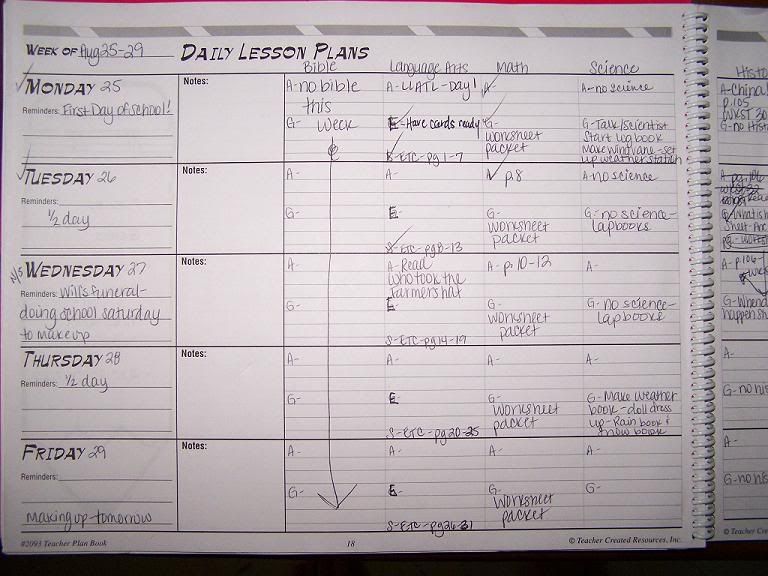 WEEK OF Aug 25-29 DAILY LESSON PLANS
Bible Language Arts Math Science
MONDAY 25
Reminders: First Day of school!
Notes:
A- no bible
this
G- week
A- LLATL-Day 1
E- Have cards ready
S-ETC-pg 1-7
A-
G-
worksheet
packet
A- no science
G- Talk/scientist
Start log book
Make wind vane-set
up weather station
TUESDAY 26
Reminders:
1/2 day
Notes:
A-
G-
A-
E-
S-ETC-pg 8-13
A- p.8
G-
worksheet
packet
A- no science
G- no science-
lapbooks
N/S WEDNESDAY 27
Reminders: Will's funeral-
doing school saturday
to make up
Notes:
A-
G-
A- Read
who took the
farmers hat
E-
S-ETC-pg 14-19
A- p. 10-12
G-
worksheet
packet
A-
G- no science-
lapbooks
THURSDAY 28
Reminders: 1/2 day
Notes:
A-
G-
A-
E-
S-ETC-pg 20-25
A-
G-
worksheet
packet
A-
G- Make weather
book-doll dress
up-Rain book &
snow book
FRIDAY 29
Reminders:
Making up tomorrow
Notes:
A-
G-
A-
E-
S-ETC-pg 26-31
A-
G-
worksheet
packet
A-
G-
#2093 Teacher Plan Book 18 © Teacher Created Resources, Inc.
Histo
A-China
p.105
WKST 30
G-no Hist
A pg.106
G What is h
A- p.106
G- Whend
happen sh
A-
G- no his
A-
G- no his
© Teacher Crea